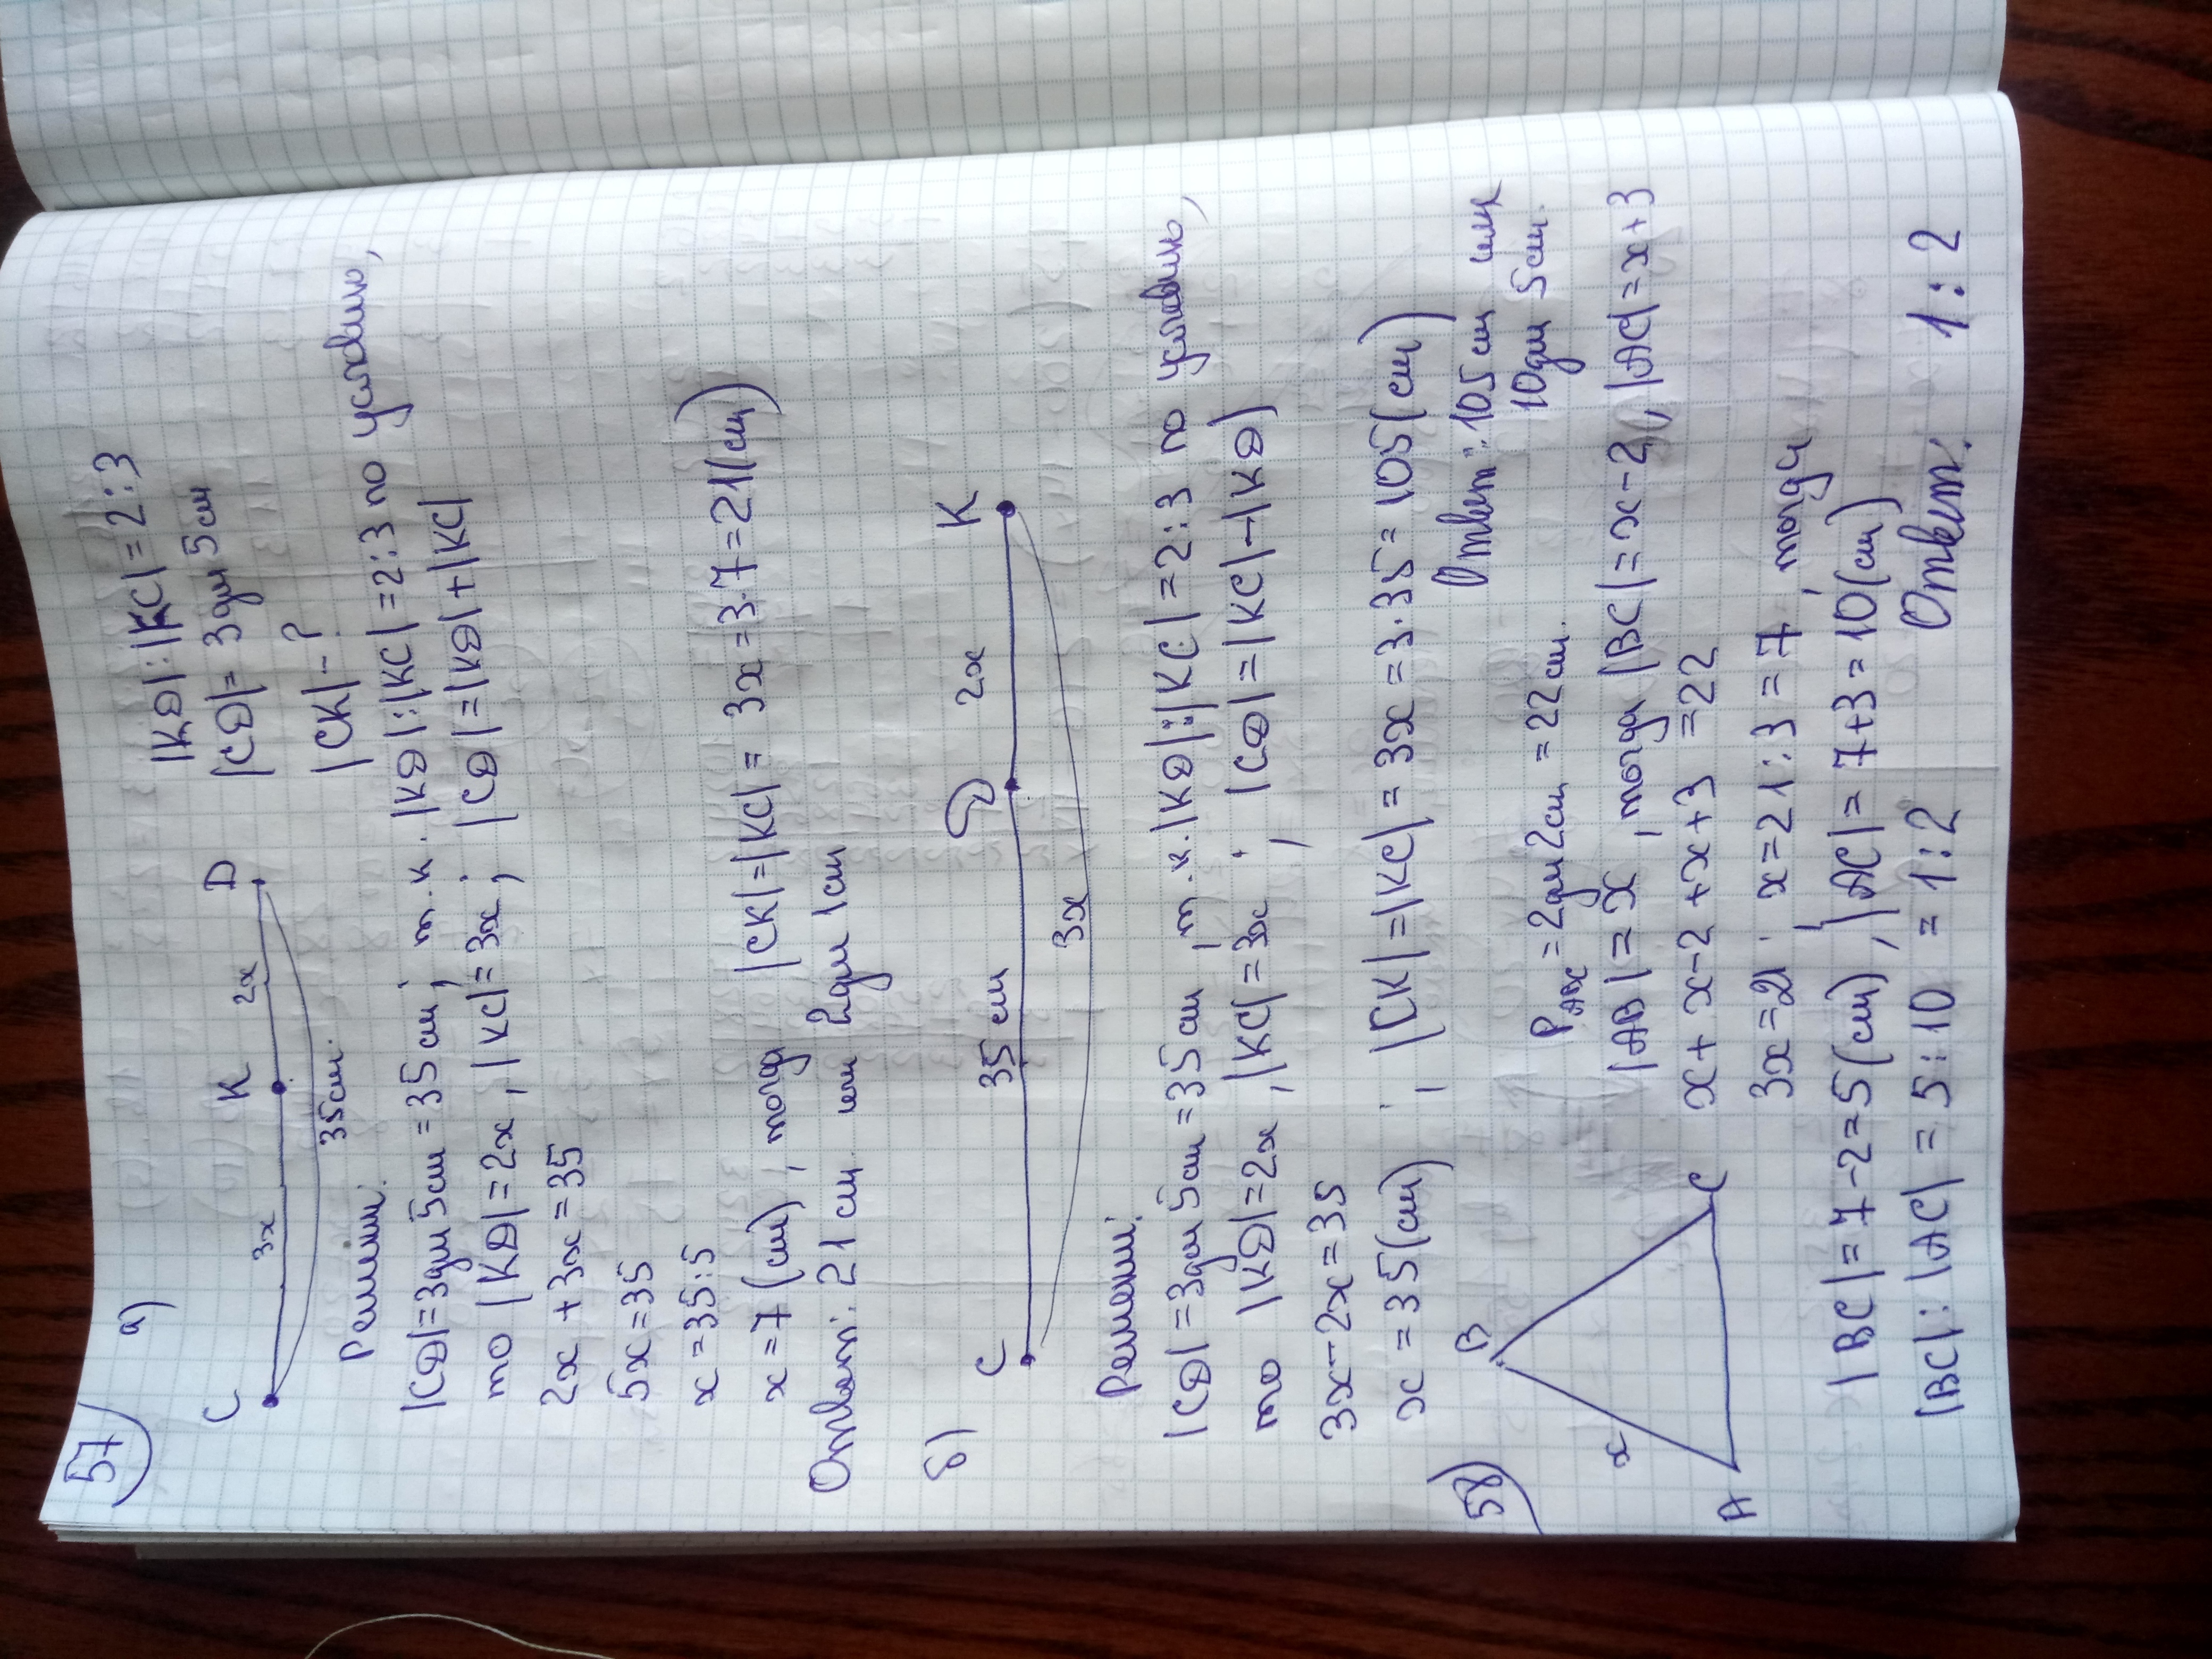 57) а) |KD|:|KC|=2:3
C 3x K 2x D |CD|=3дм 5см
35см. |CK|-?
Решени:
|CD|=3дм 5см=35см, т.к. |KD|:|KC|=2:3 по условию,
то |KD|=2x, |KC|=3x; |CD|=|KD|+|KC|
2x+3x=35
5x=35
x=35:5
x=7(см), тогда |CK|=|KC|=3x=3·7=21(см)
Ответ: 21см или 2дм 1см
б)
C 35см D 2x K
3x
Решени:
|CD|=3дм 5см=35см, т.к. |KD|:|KC|=2:3 по условию,
то |KD|=2x, |KC|=3x; |CD|=|KC|-|KD|
3x-2x=35
x=35(см); |CK|=|KC|=3x=3·35=105(см)
Ответ: 105см или
10дм 5см.
58) B P ABC=2дм2см=22см.
x |AB|=x, тогда |BC|=x-2, |AC|=x+3
A C x+x-2+x+3=22
3x=21; x=21:3=7, тогда
|BC|=7-2=5(см), |AC|=7+3=10(см)
|BC|:|AC|=5:10=1:2 Ответ: 1:2